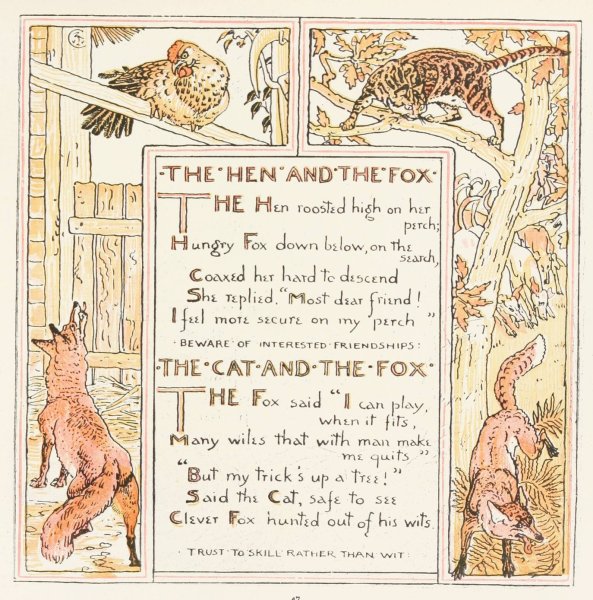 ·THE·HEN·AND·THE·FOX·
THE Hen roosted high on her
perch;
Hungry Fox down below, on the
search,
Coaxed her hard to descend
She replied, "Most dear friend!
I feel more secure on my perch"
·BEWARE·OF·INTERESTED·FRIENDSHIPS:
·THE·CAT·AND·THE·FOX·
THE Fox said "I can play,
when it fits,
Many wiles that with man make
me quits"
"But my trick's up a tree!"
Said the Cat, safe to see
Clever Fox hunted out of his wits.
·TRUST·TO·SKILL·RATHER·THAN·WIT:
47